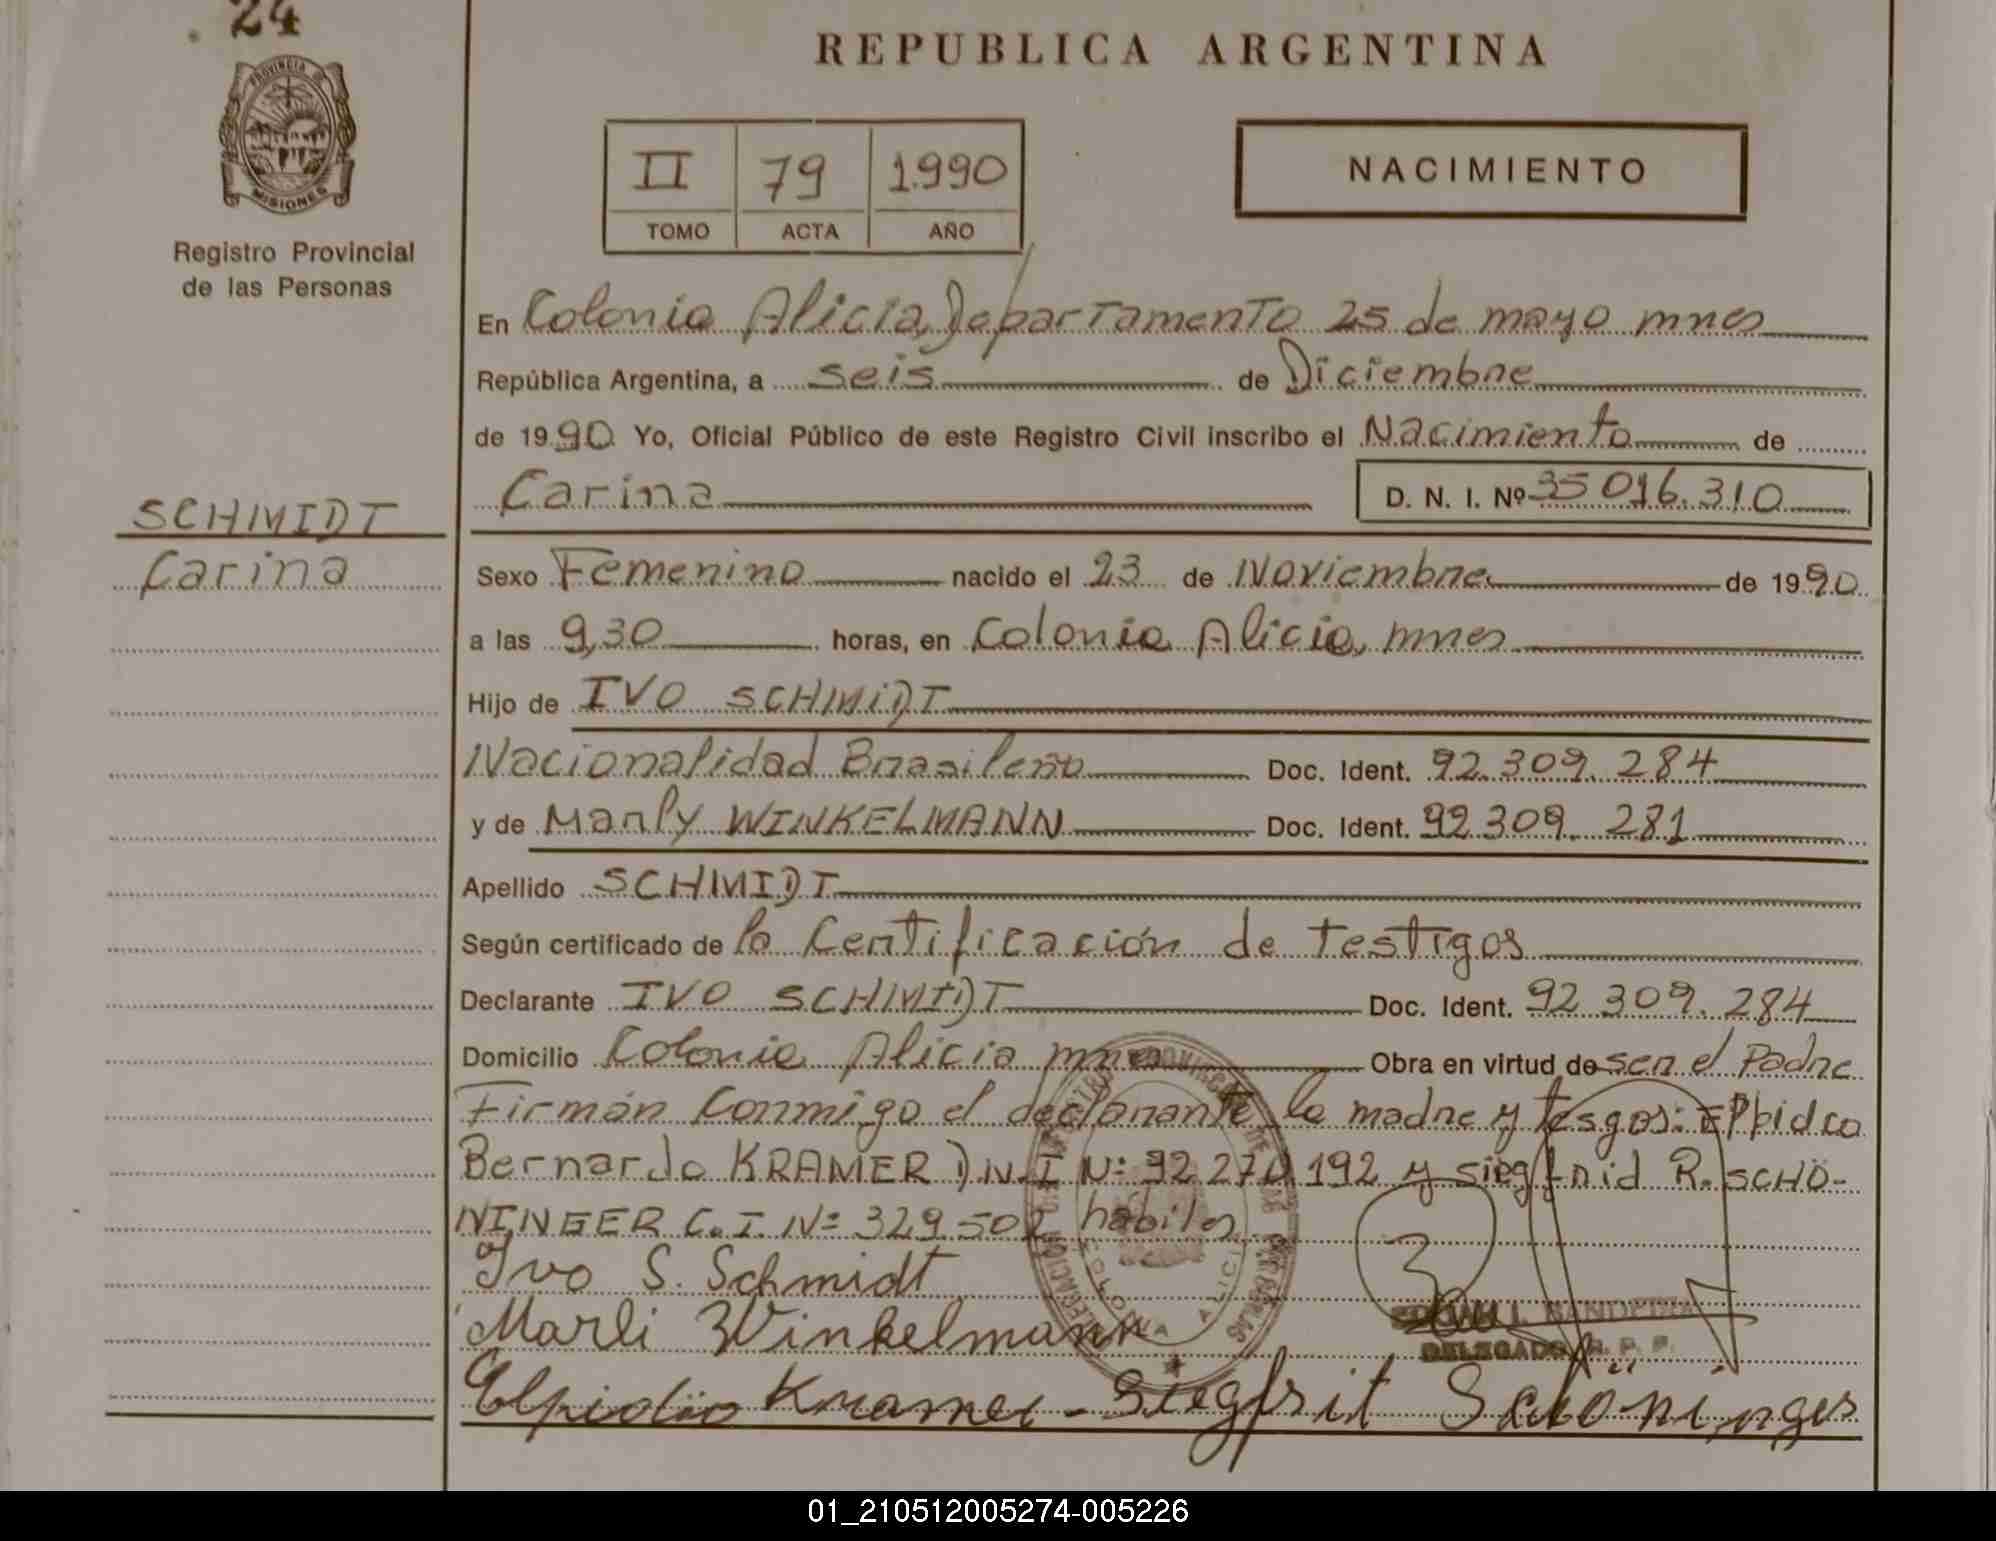 24
REPUBLICA ARGENTINA
PROVINCIA D
MISIONES
Registro Provincial
de las Personas
II 79 1.990
TOMO ACTA AÑO
NACIMIENTO
En Colonia Alicia, Departamento 25 de mayo mnes
República Argentina, a seis de Diciembre
de 1990 Yo, Oficial Público de este Registro Civil inscribo el Nacimiento de
Carina D. N. I. Nº 35 016.310
SCHMIDT
Carina
Sexo Femenino nacido el 23 de Noviembre de 1990
a las 9,30 horas, en Colonia Alicia, mnes
Hijo de IVO SCHMIDT
Nacionalidad Brasileño Doc. Ident. 92.309.284
y de Marly WINKELMANN Doc. Ident. 92 309. 281
Apellido SCHMIDT
Según certificado de la Certificación de testigos
Declarante IVO SCHMIDT Doc. Ident. 92 309. 284
Domicilio Colonia Alicia mnes Obra en virtud de ser el Padre
Firmán Conmigo el declarante, la madre y tesgos:
Bernardo KRAMER D.N.I Nº 92 270 192 y siegfrid R. SCHÖ-
NINGER C.I. Nº 329.502 habiles
Ivo S. Schmidt
Marli Winkelmann
COLONIA ALICIA
DELEGADO R. P. P.
Elpidio Kramer - Siegfrit Schöninger
01_210512005274-005226